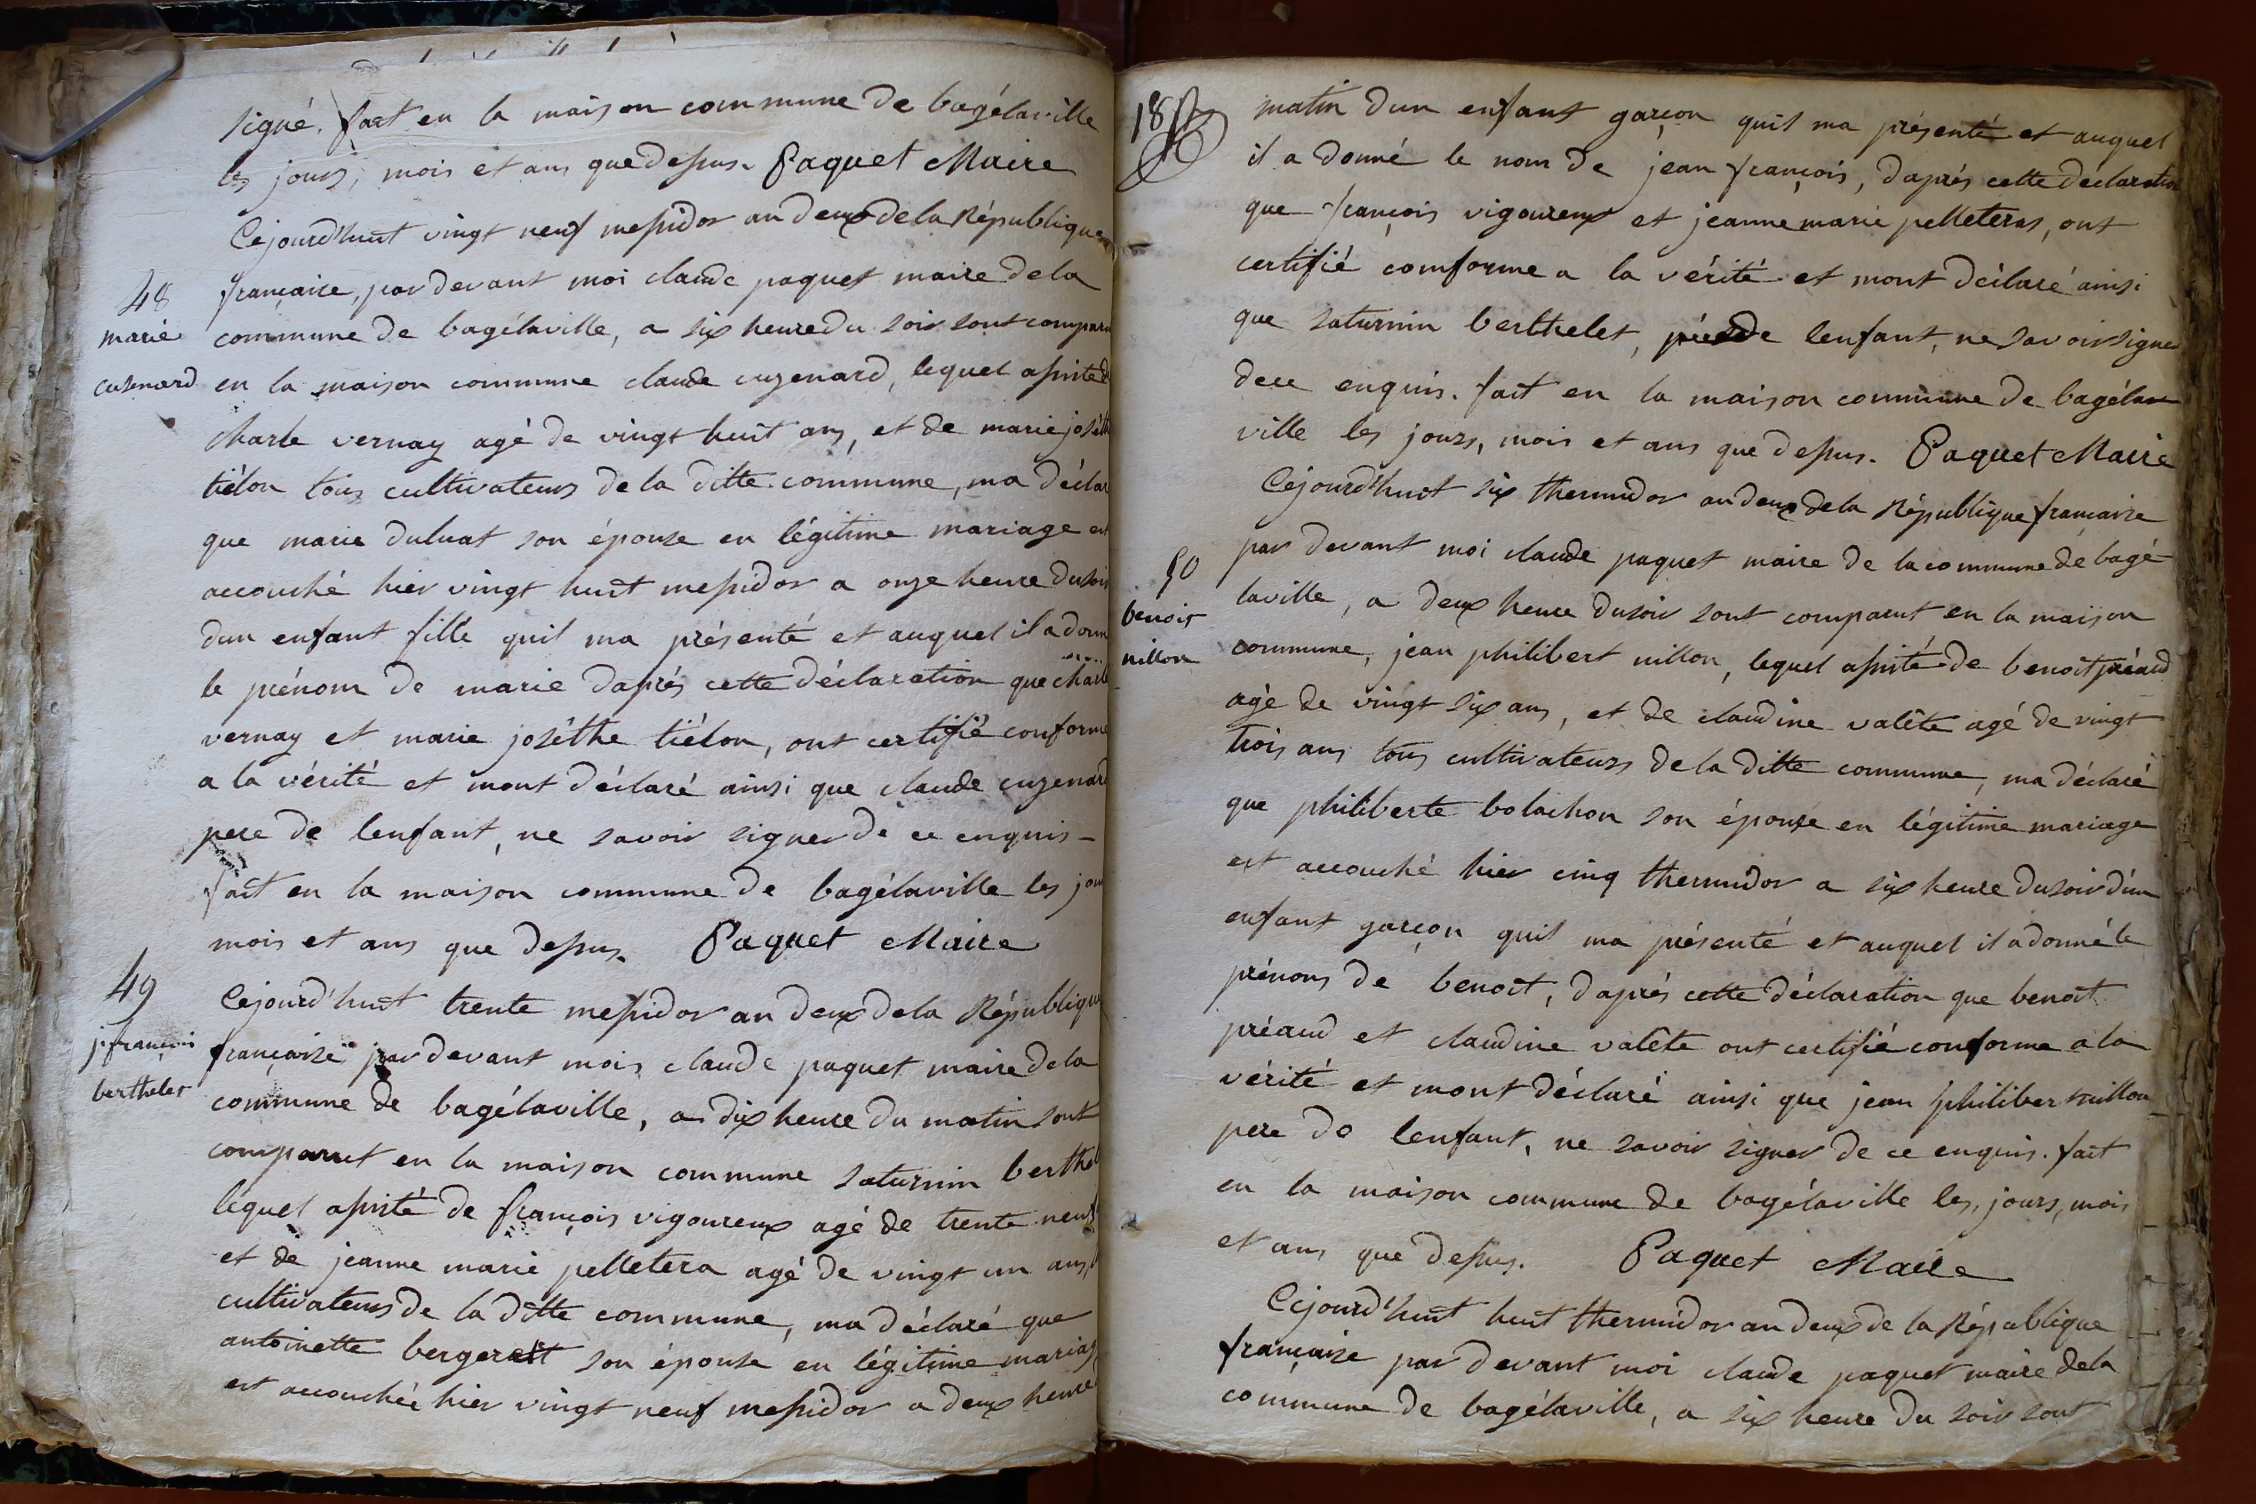 signé. fait en la maison commune de bagélaville
les jours, mois et ans que dessus. Paquet Maire
Cejourd'huit vingt neuf messidor an deux de la République
48
française, par devant moi claude paquet maire de la
marie
commune de bagélaville, a six heure du soir sont compar
cuzenard
en la maison commune claude cuzenard, lequel assisté de
charle vernay agé de vingt huit ans, et de marie joséthe
tiélon tous cultivateurs de la ditte commune, ma déclar
que marie duluat son épouse en légitime mariage est
accouché hier vingt huit messidor a onze heure du soir
dun enfant fille quil ma présenté et auquel il a donn
le prénom de marie daprés cette déclaration que charle
vernay et marie joséthe tiélon, ont certifié conforme
a la vérité et mont déclaré ainsi que claude cuzenard
pere de lenfant, ne savoir signer de ce enquis -
fait en la maison commune de bagélaville les jou
mois et ans que dessus. Paquet Maire
49
Cejourd'huit trente messidor an deux de la République
j. françois
française par devant mois claude paquet maire de la
berthelet
commune de bagélaville, a dix heure du matin sont
comparut en la maison commune saturnin berthel
lequel assisté de françois vigoureux agé de trente neuf
et de jeanne marie pelletera agé de vingt un ans,
cultivateurs de la ditte commune, ma déclaré que
antoinette son épouse en légitime mariag
est accouchée hier vingt neuf messidor a deux heure
18
matin dun enfant garçon quil ma présenté et auquel
il a donné le nom de jean françois, daprés cette déclaration
que françois vigoureux et jeanne marie pelleteras, ont
certifié comforme a la vérité et mont déclaré ainsi
que saturnin berthelet, père de lenfant, ne savoir signer
dece enquis. fait en la maison commune de bagéla
ville les jours, mois et ans que dessus. Paquet Maire
Cejourd'huit six thermidor an deux de la République francaise
par devant moi claude paquet maire de la commune de bagé
50
laville, a deux heure du soir sont comparut en la maison
benoit
commune, jean philibert nillon, lequel assisté de benoit préaud
nillon
agé de vingt six ans, et de claudine valéte agé de vingt
trois ans tous cultivateurs de la ditte commune, ma déclaré
que philiberte bolachon son épouse en légitime mariage
est accouché hier cinq thermidor a six heure du soir d'un
enfant garçon quil ma présenté et auquel il a donné le
prénons de benoit, daprés cette déclaration que benoit
préaud et claudine valéte ont certifié conforme a la
vérité et mont déclaré ainsi que jean philiber nillon
pere de lenfant, ne savoir signer de ce enquis. fait
en la maison commune de bagélaville les, jours, mois
et ans que dessus. Paquet Maire
Cejourd'huit huit thermidor an deux de la République
française par devant moi claude paquet maire dela
commune de bagélaville, a six heure du soir sont